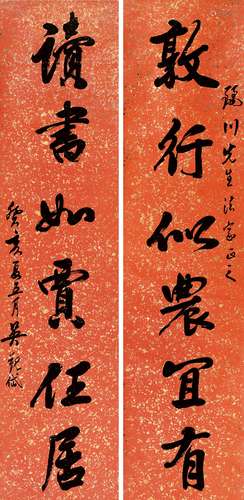 川先生法家正之
敦行似農冝有
讀書如賈任居
癸亥夏五月吳觀岱